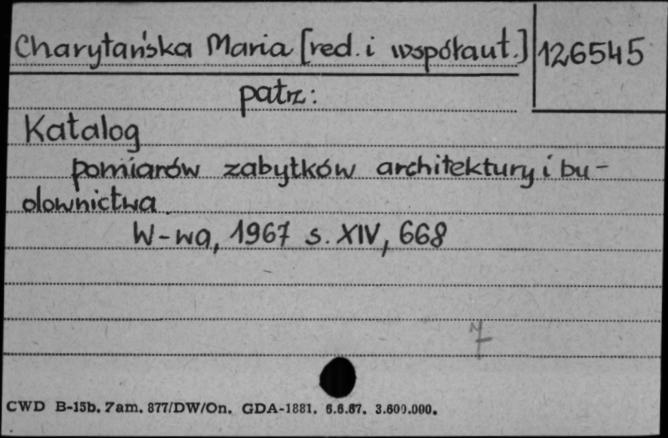 Charytańska Maria [red. i współaut.] 126545
patrz:
Katalog
pomiarów zabytków architektury i bu-
downictwa.
W-wa, 1967 s. XIV, 668
7
CWD B-15b. Zam. 877/DW/On. GDA-1881. 6.6.67. 3.600.000.